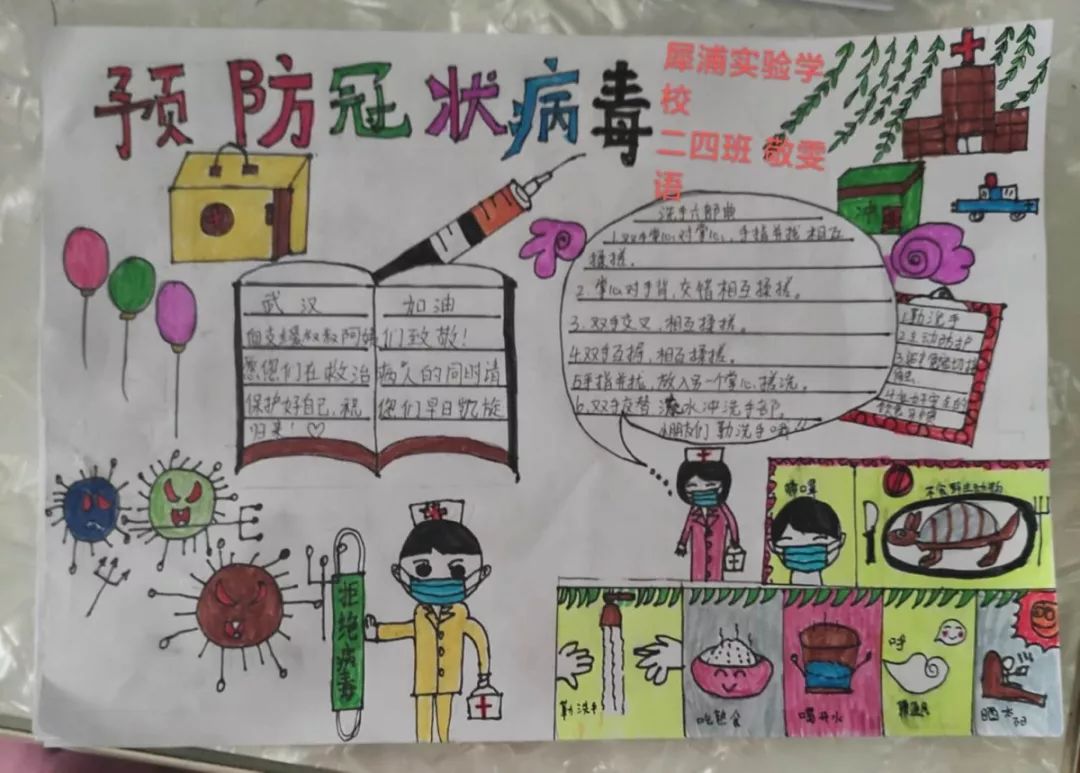 预防冠状病毒
犀浦实验学
校
二四班 敬雯
语
洗手六部曲
1.双手掌心对掌心,手指并拢相互
揉搓。
2.掌心对手背,交错相互揉搓。
3.双手交叉,相互揉搓。
4.双手互握,相互揉搓。
5手指并拢,放入另一个掌心搓洗。
6.双手交替 水冲洗手部。
朋友们勤洗手哦
武汉 加油
向支援叔叔阿姨们致敬!
愿您们在救治病人的同时请
保护好自己,祝您们早日凯旋
归来!♡
1.勤洗手
2.主动防护
拒绝病毒
戴口罩
不食野生动物
勤洗手
吃熟食
喝开水
呼
晒太阳